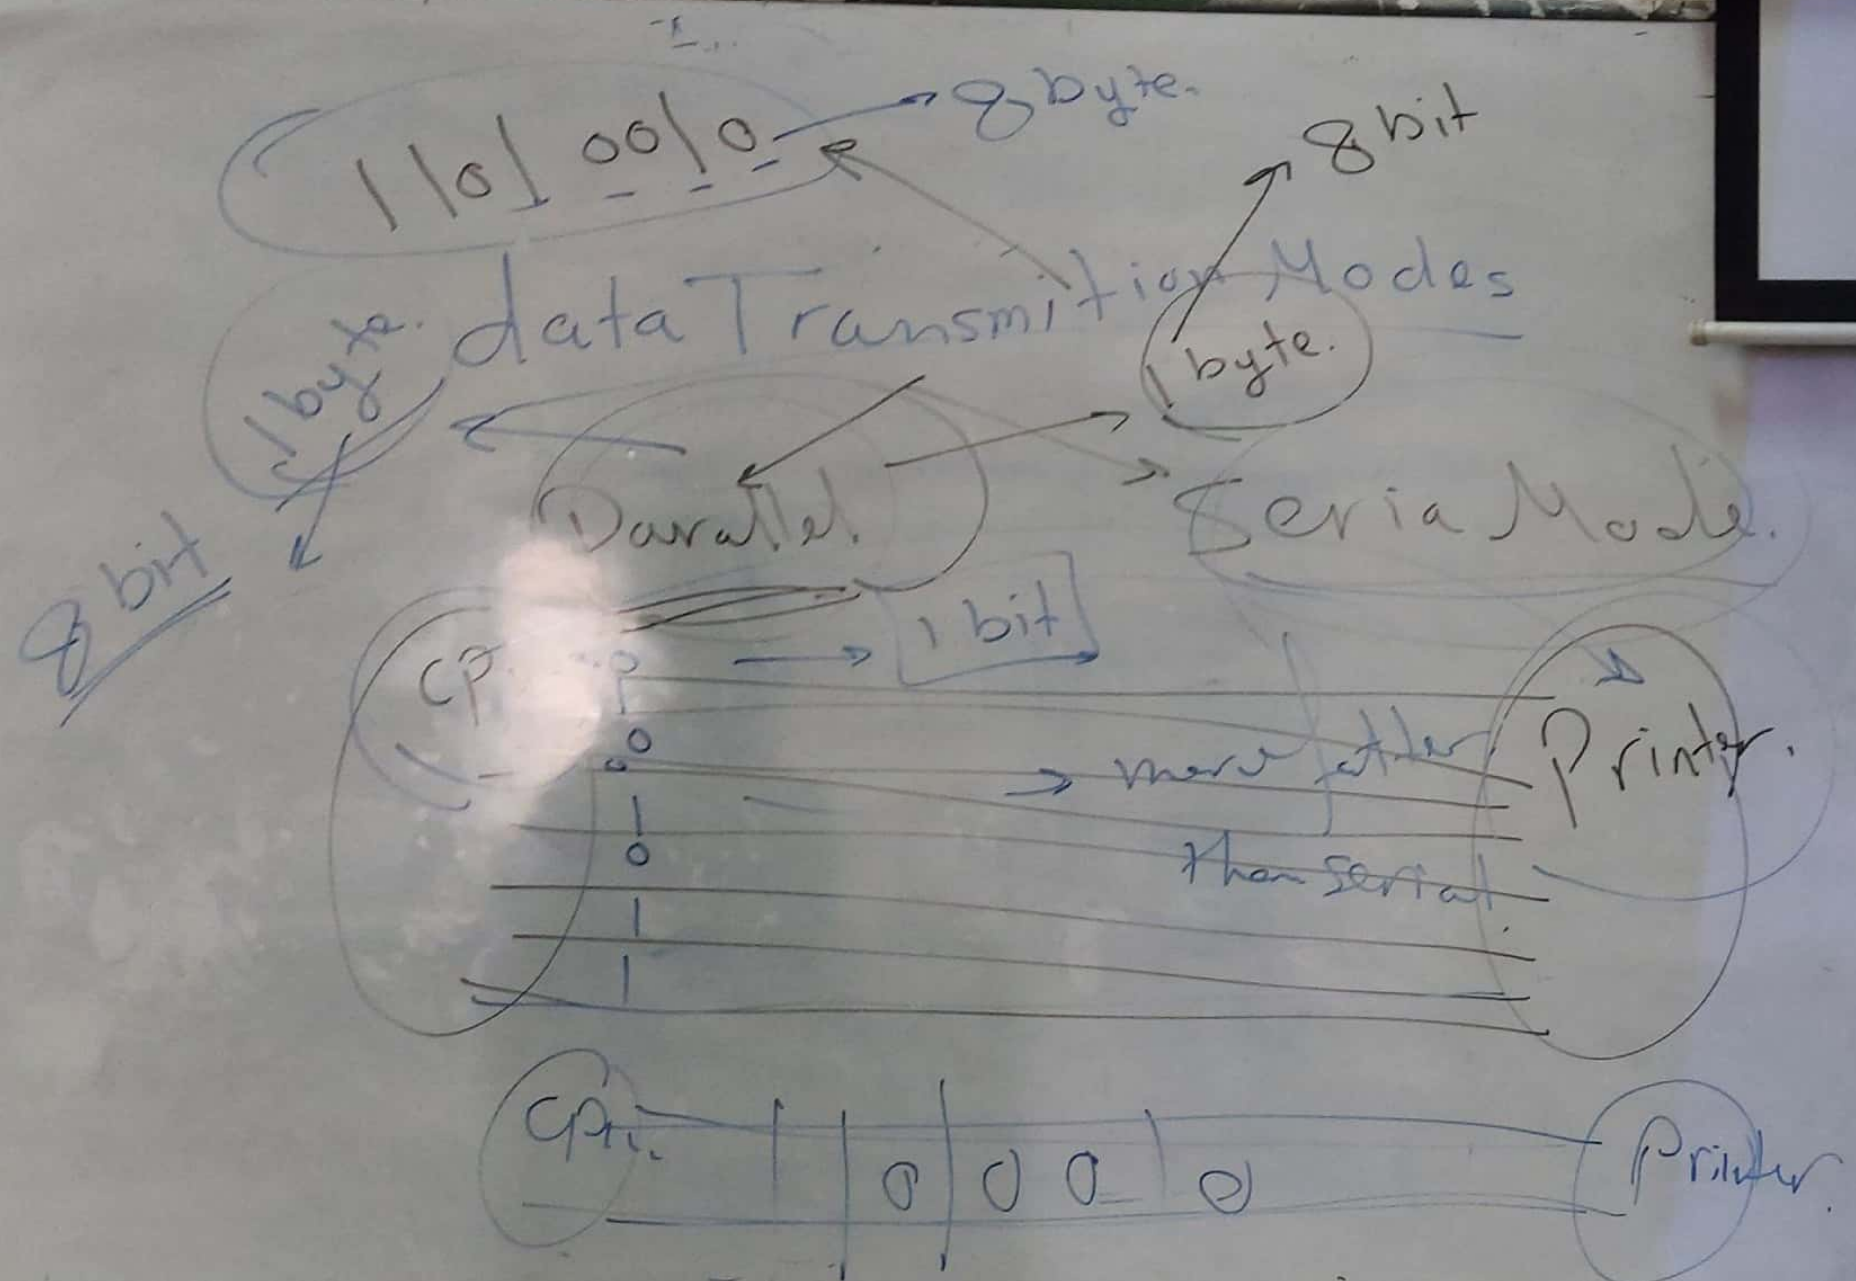 11010010 8 byte.
8 bit
data Transmition Modes
1 byte.
1 byte.
Parallel.
Seria Mode.
8 bit
1 bit
CP
0
0
1
0
1
1
Printer.
more
than serial.
CPU.
1 1 0 1 0 0 1 0
Printer.